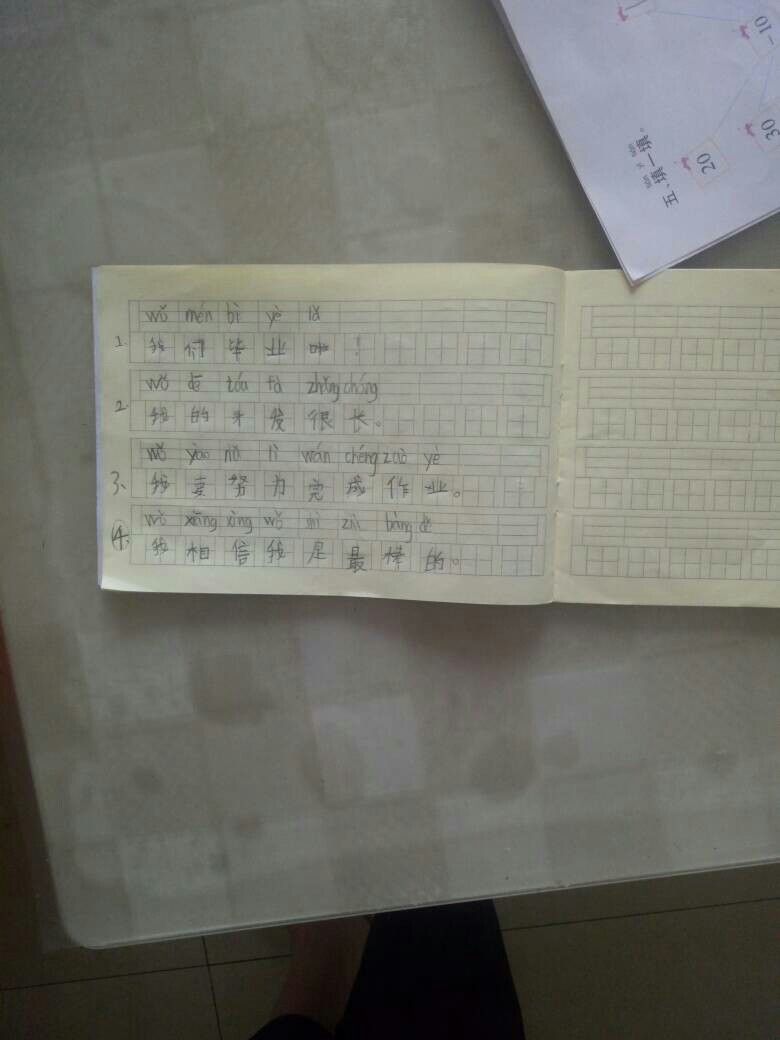 五、填一填。
20
30
-10
wǒ mén bì yè lā
1. 我们毕业啦！
wǒ dē tóu fà zhǎng cháng
2. 我的头发很长。
wǒ yào nǔ lì wán chéng zuò yè
3、我要努力完成作业。
wǒ xiāng xìng wǒ shì zuì bàng dē
④、我相信我是最棒的。